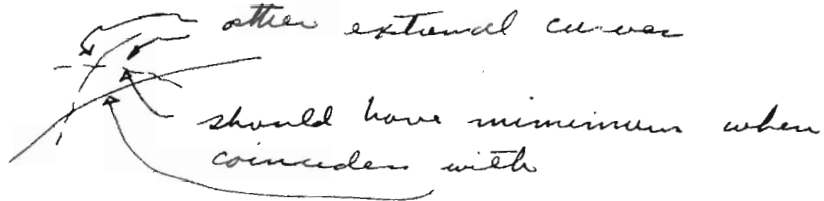 other extremal curves
should have mimimum when
coincides with